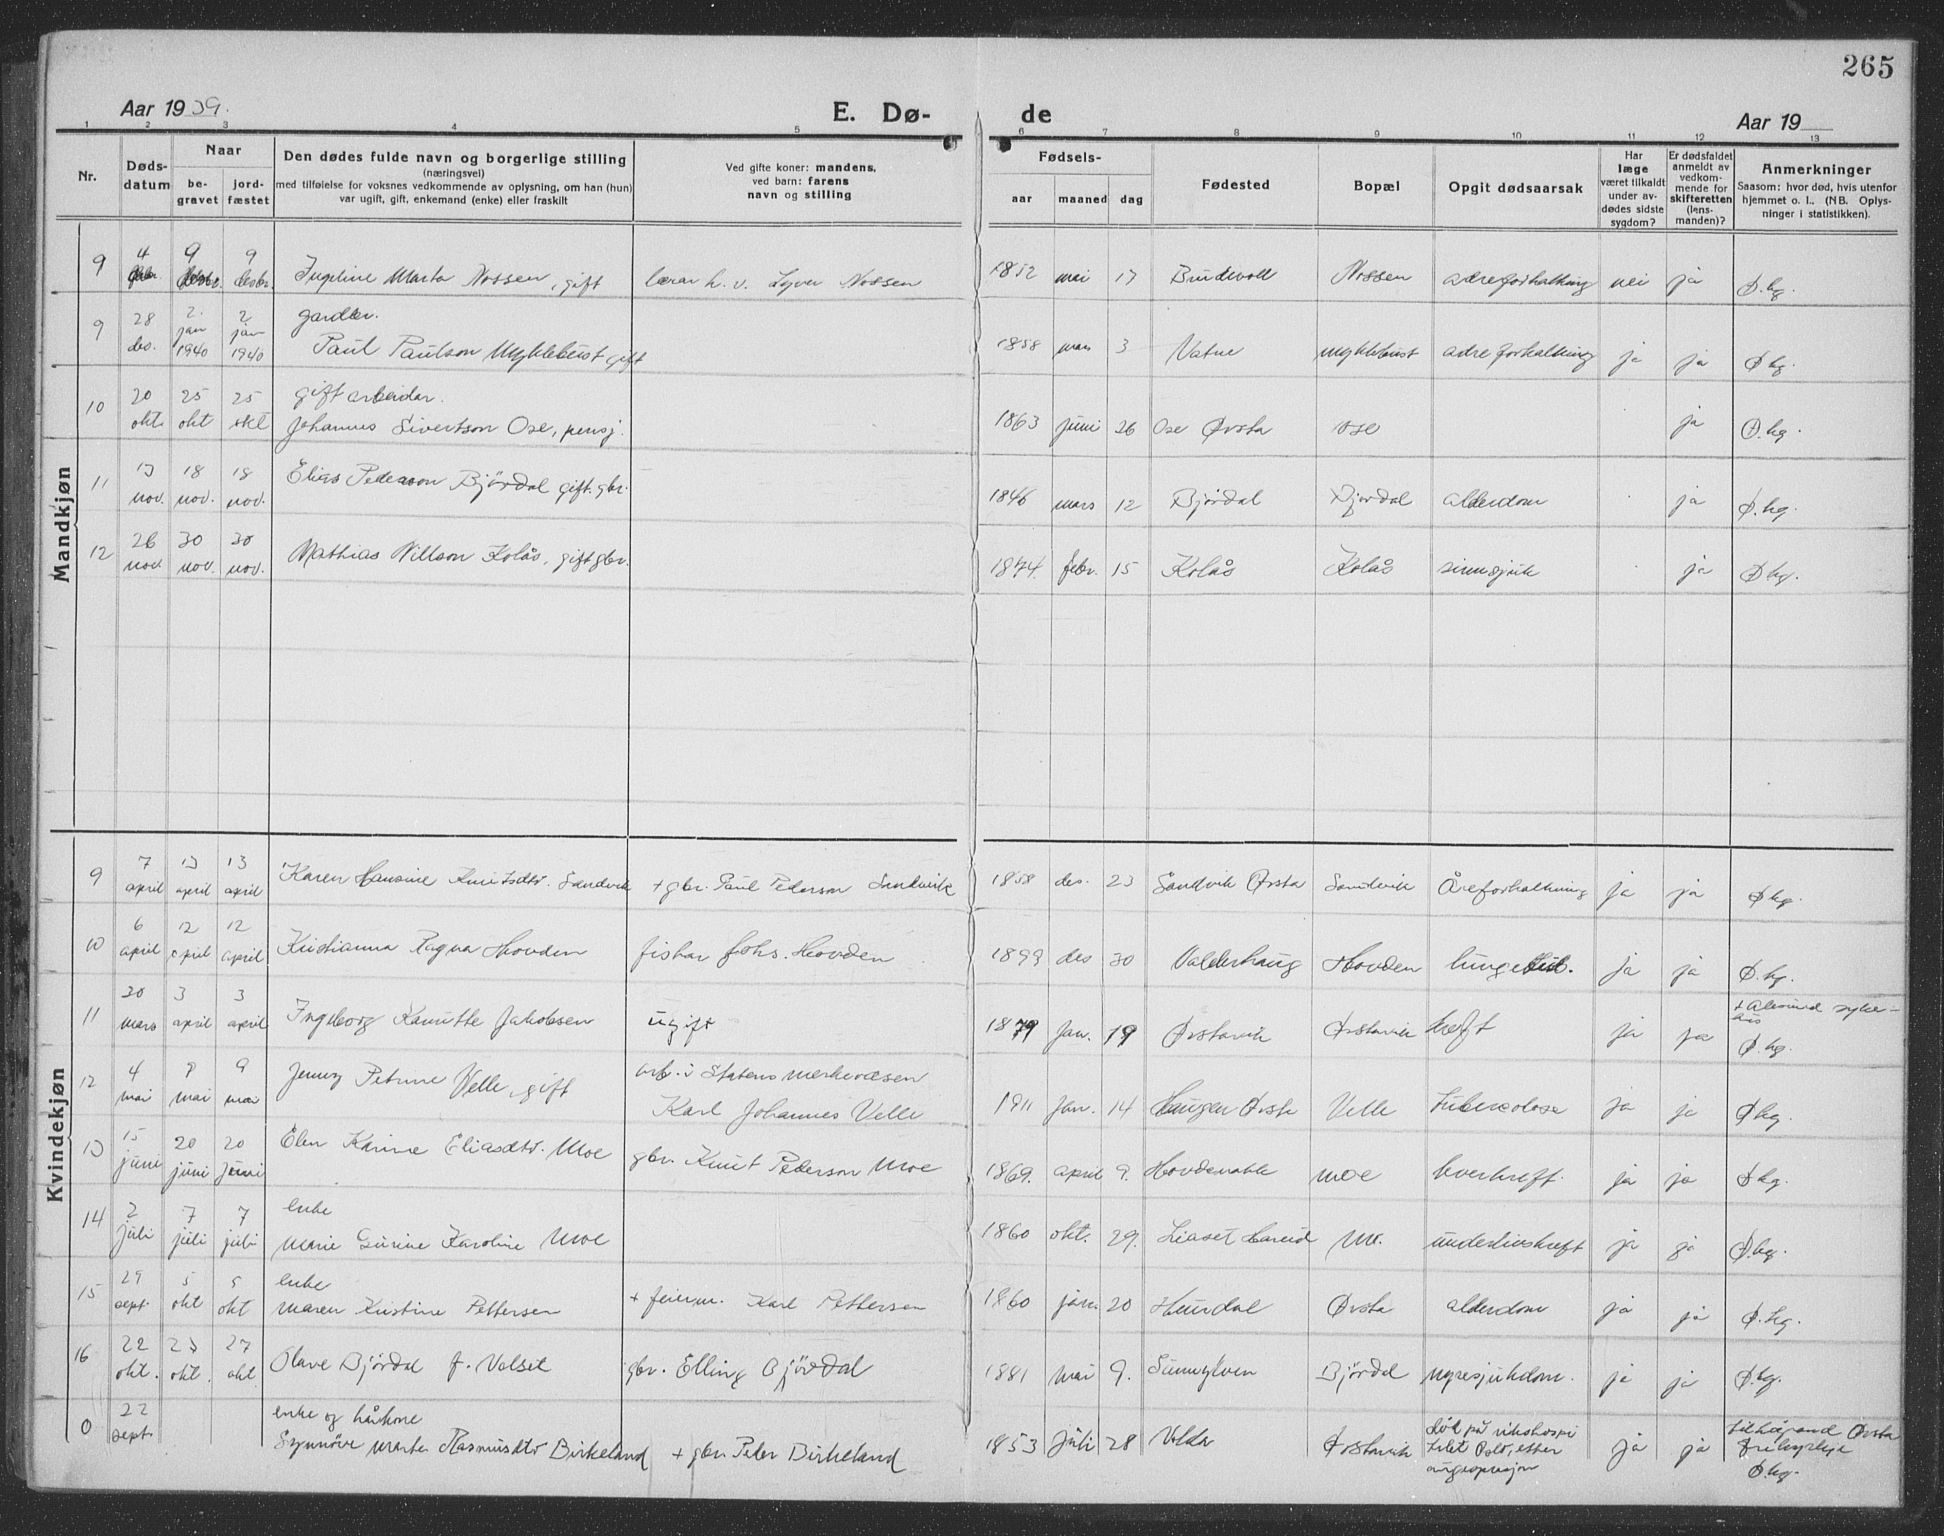 265
Aar 1939.
E. Dø-
de
Aar 19
1 2 3 4 5 6 7 8 9 10 11 12 13
Nr.
Døds-
datum
Naar
be-
gravet
jord-
fæstet
Den dødes fulde navn og borgerlige stilling
(næringsvei)
med tilføielse for voksnes vedkommende av oplysning, om han (hun)
var ugift, gift, enkemand (enke) eller fraskilt
Ved gifte koner: mandens,
ved barn: farens
navn og stilling
Fødsels-
aar maaned dag
Fødested
Bopæl
Opgit dødsaarsak
Har
læge
været tilkaldt
under av-
dødes sidste
sygdom?
Er dødsfaldet
anmeldt av
vedkom-
mende for
skifteretten
(lens-
manden)?
Anmerkninger
Saasom: hvor død, hvis utenfor
hjemmet o. l., (NB. Oplys-
ninger i statistikken).
Mandkjøn
9 4 9 9
desbr. Marta Nossen, gift lærar h. v. Nossen 1852 mai 17 Brudevoll Nossen adreforkalkning nei ja Ø.kg.
9 28 des. 2 jan 1940 2 jan 1940 gardbr.
Paul Paulson Myklebust gift 1858 mars 3 Vatne Myklebust adreforkalkning ja ja Ø kg.
10 20 okt. 25 okt 25 okt gift arbeidar.
Johannes Sivertson Ose, pensj. 1863 juni 26 Ose Ørsta Ose ja Ø.kg.
11 13 nov. 18 nov. 18 nov. Elias Pederson Bjørdal gift. gbr. 1846 mars 12 Bjørdal Bjørdal alderdom ja Ø.kg.
12 26 nov. 30 nov. 30 nov. Mathias Nillson Kolås, gift gbr. 1874. febr. 15 Kolås Kolås sinnsjuk ja Ø kg.
Kvindekjøn
9 7 april 13 april 13 april Karen Hansine Knutsdtr. Sandvik + gbr. Paul Pederson Sandvik 1858 des. 23 Sandvik Ørsta Sandvik Åreforkalkning ja ja Ø kg.
10 6 april 12 april 12 april Kristianna Ragna Hovden fiskar Johs. Hovden 1899 des 30 Valderhaug Hovden ja ja Ø.kg.
11 30 mars 3 april 3 april Ingeborg Kanutte Jakobsen ugift 1879 Jan. 19 Ørstavik Ørstavik kreft ja ja + Ålesund sykehus
Ø.kg.
12 4 mai 9 mai 9 mai Jenny Petrine Velle, gift arb. i Statens merkevæsen
Karl Johannes Velle 1911 Jan. 14 Haugen Ørsta Velle tuberculose ja ja Ø kg.
13 15 juni 20 juni 20 juni Elen Karine Eliasdtr. Moe gbr. Knut Pederson Moe 1869. april 9. Moe leverkreft. ja ja Ø kg.
14 2 juli 7 juli 7 juli enke
Marie Gurine Karoline Moe 1860 okt. 29. Liaset Hareid Mo. underlivskreft ja ja Ø.kg.
15 29 sept. 5 okt 5 okt enke
Maren Kristine Pettersen + feierm. Karl Pettersen 1860 jan. 20 Ørsta alderdom ja ja Ø.kg.
16 22 okt. 27 okt. 27 okt Olave Bjørdal f. Valset gbr. Elling Bjørdal 1881 mai 9. Sunnylven Bjørdal nyresjukdom. ja ja Ø.kg.
0 22 sept. enke og kårkone
Synnøve Marta Rasmusdtr Birkeland + gbr. Peter Birkeland 1853 Juli 28 Volda Ørstavik død på rikshospi
talet Oslo, etter
ja ja Ørsta
Ø.kg.